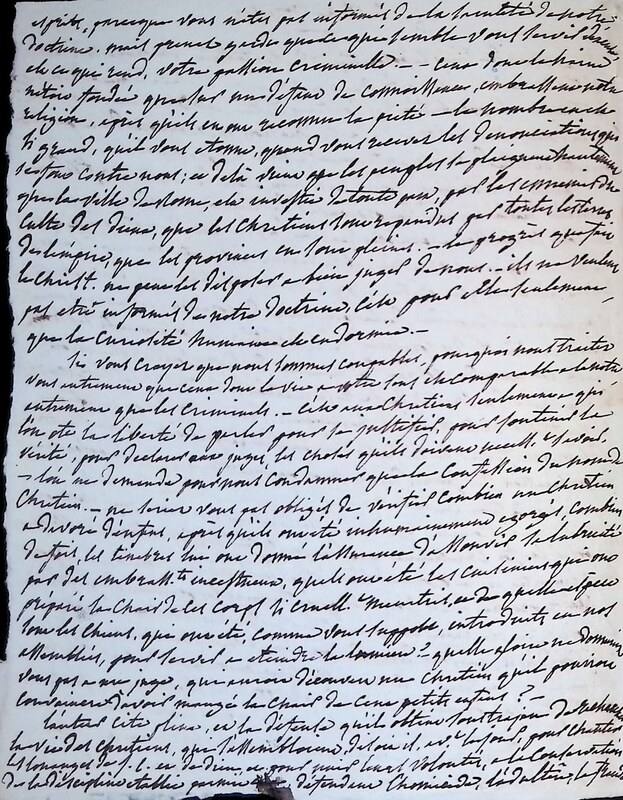 esprit, puisque vous n'êtes pas informés de la sainteté de notre
doctrine, mais prenez garde que ce que semble vous servir d'excuse,
est ce qui rend votre passion criminelle. — ceux dont la haine
n'étoit fondée que sur un défaut de connoissance, embrassent notre
religion, après qu'ils en ont reconnu la piété — le nombre en est
si grand, qu'il vous étonne, quand vous recevez les dénonciations que
se font contre nous; de là vient que les peuples se pleignent hautement
que la ville de Rome, est investie de toute part, par les ennemis du
culte des dieux, que les Chrétiens sont répandus par toutes les terres
de l'empire, que les provinces en sont pleines. — le progrès que fait
le Christ. ne peut les disposer à bien juger de nous. — ils ne veulent
pas être informés de notre doctrine, c'est pour elle seulement,
que la curiosité humaine est endormie. —
si vous croyez que nous sommes coupables, pourquoi nous traiter
vous autrement que ceux dont la vie à votre sens est comparable à la notre
autrement que les criminels. — C'est aux Chrétiens seulement à qui
l'on ôte la liberté de parler pour se justifier, pour soutenir la
vérité, pour déclarer aux juges les choses qu'ils doivent savoir
— l'on ne demande pour nous condamner que la confession du nom de
Chrétien. — ne seriez vous pas obligés de vérifier combien un Chrétien
a dévoré d'enfans, après qu'ils ont été inhumainement égorgés, combien
de fois les ténèbres lui ont donné l'assurance d'assouvir sa lubricité
par des embrass.ts incestueux, quels ont été les cuisiniers que ont
préparé la chair de ces corps si cruell. meurtris, et de quelle espèce
sont les chiens, que ont été, comme vous supposé, introduits en nos
assemblés, pour servir à éteindre la lumière? quelle gloire ne donneriez
vous pas à un juge, que auroit découvert un Chrétien qu'il pourroit
convaincre d'avoir mangé la chair de cent petits enfans? —
l'auteur cite pline, et la défense qu'il obtint de Trajan de rechercher
la vie des chrétiens, que s'assembloient, pour chanter
les louanges de J. C. et de dieu, et pour unir leurs volontés, à la conservation
de la discipline établie parmi eux, défendent l'homicide, l'adultère, la fraude